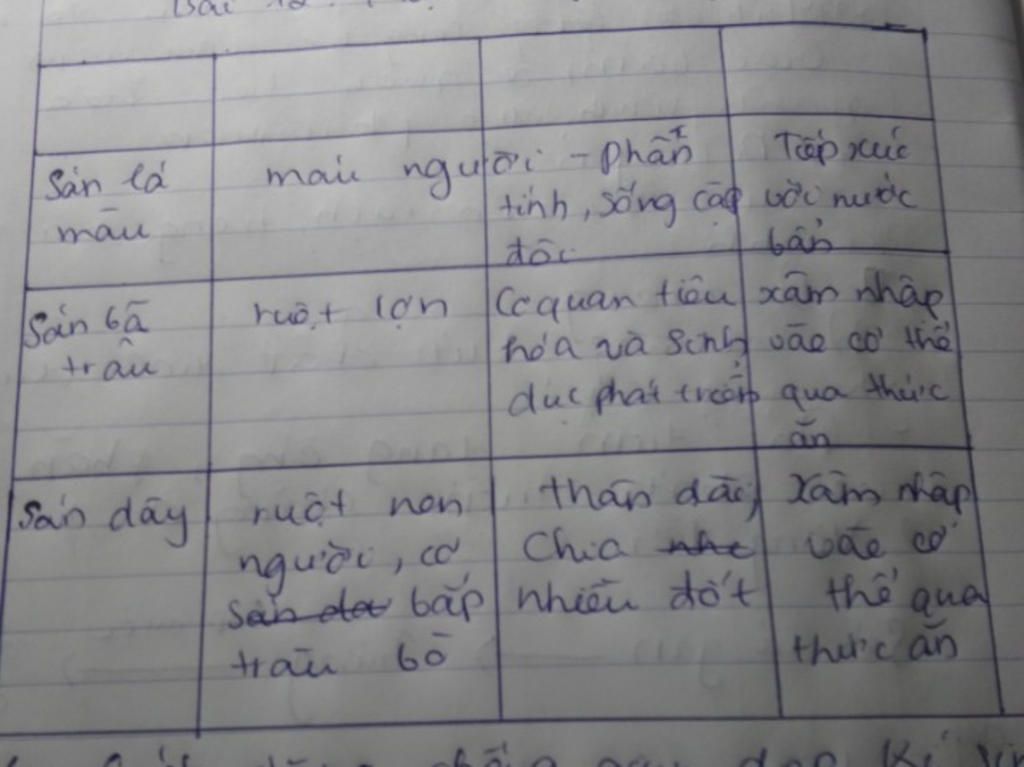 Bài 12
Sán lá
máu
máu người
- Phân
tính, sống cặp
đôi
Tiếp xúc
với nước
bẩn
Sán bã
trầu
ruột lợn
Cơ quan tiêu
hóa và sinh
dục phát triển
xâm nhập
vào cơ thể
qua thức
ăn
Sán dây
ruột non
người, cơ
bắp
trâu bò
thân dài,
Chia
nhiều đốt
Xâm nhập
vào cơ
thể qua
thức ăn